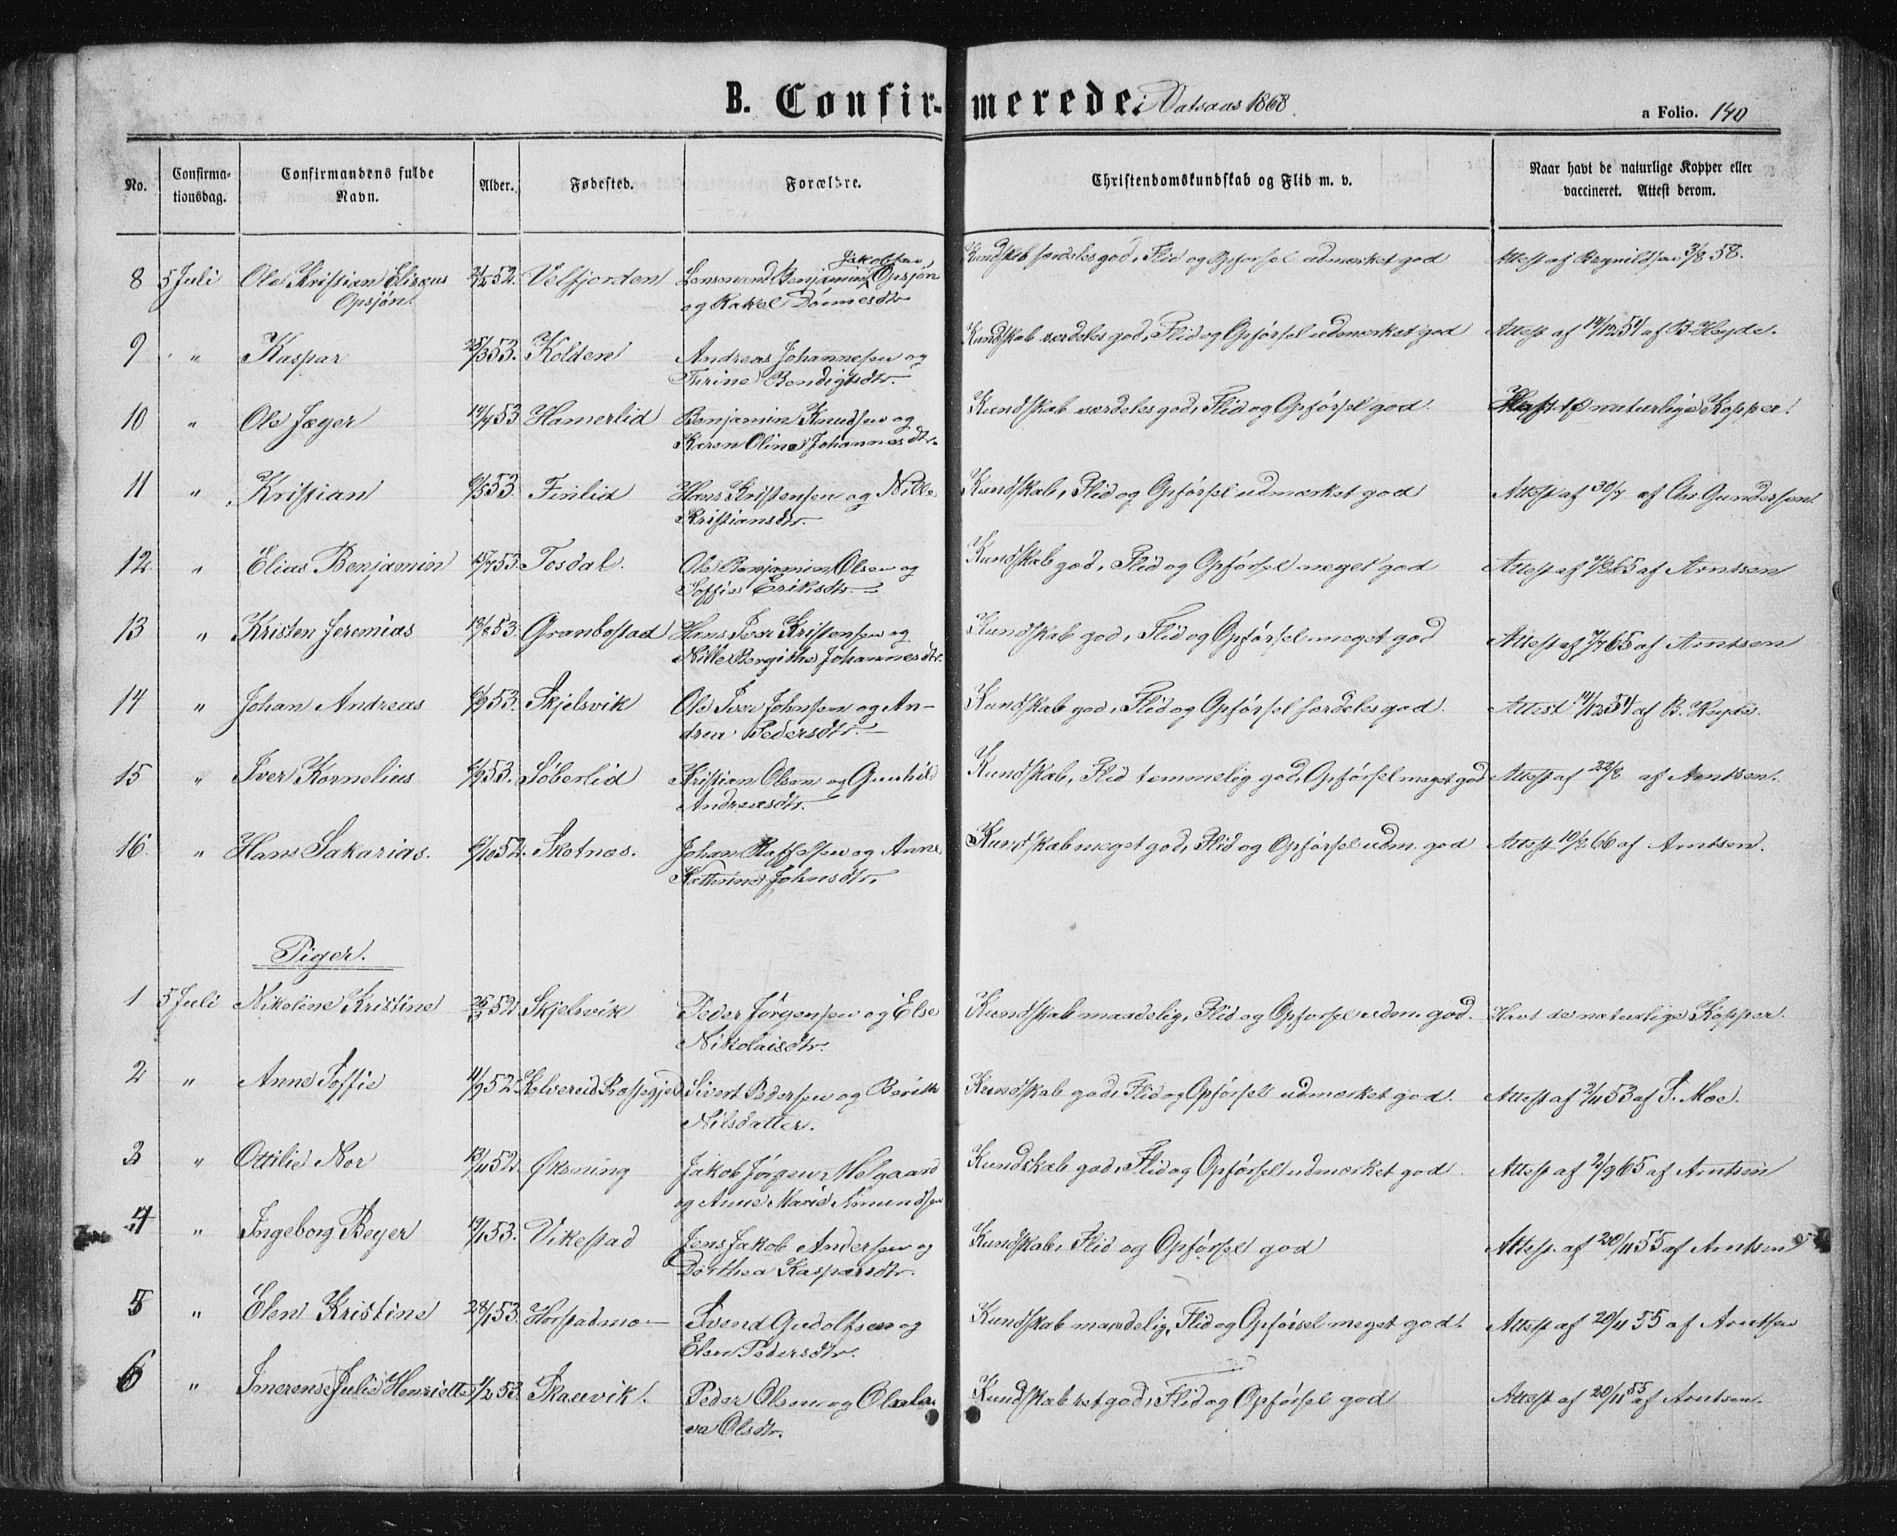 B. Confir- merede i Vatsaas 1868. a Folio. 140
No. Confirma-tionsdag. Confirmandens fulde Navn. Alder. Fødested. Forældre. Christendomskundskab og Flid m. v. Naar havt de naturlige Kopper eller vaccineret. Attest derom.
8 5 Juli Ole Kristian Eliseus 2/12 52. Velfjorden Lensmand Benjamin Jakobsen Opsjøn Kundskab særdeles god, Flid og Opførsel udmærket god Attest af 3/8 58.
Opsjøn og Rakel
9 " Kaspar 25/3 53. Kolden Andreas Johannesen og Kundskab særdeles god, Flid og Opførsel udmærket god Attest af 14/12 54 af B. Heyde.
Turine Bendigtsdtr.
10 " Ole Jæger 14/4 53 Hamerlid Benjamin Knudsen og Kundskab særdeles god, Flid og Opførsel god. Havt de naturlige Kopper.
Karen Oline Johannesdtr.
11 " Kristian 6/5 53. Finlid Hans Kristensen og Nille Kundskab, Flid og Opførsel udmærket god Attest af 30/7 af Chr. Gundersen
Kristiansdtr.
12 " Elias Benjamin 15/7 53. Tosdal. Ole Benjamin Olsen og Kundskab god, Flid og Opførsel meget god Attest af 65 af Arntsen
Soffie Eriksdtr.
13 " Kristen Jeremias 18/8 53. Granbostad Hans Iver Kristensen og Kundskab god, Flid og Opførsel meget god Attest af 7/7 65 af Arntsen
Nille Bergithe Johannesdtr.
14 " Johan Andreas 6/9 53. Skjelsvik Ole Iver Johnsen og An- Kundskab god, Flid og Opførsel særdeles god. Attest 14/12 54 af B. Heyde.
drea Pedersdtr.
15 " Iver Kornelius 6/9 53. Soberlid Kristian Olsen og Gunhild Kundskab, Flid temmelig god, Opførsel meget god Attest af 22/8 af Arntsen.
Andreasdtr.
16. " Hans Sakarias. 6/10 52. Skotnæs. Johan Raffelsen og Anne Kundskab meget god, Flid og Opførsel udm. god Attest 10/2 66 af Arntsen.
Kathrine Johnsdtr.
Piger.
1 5 Juli Nikoline Kristine 52 Skjelsvik Peder Jørgensen og Else Kundskab maadelig, Flid og Opførsel udm. god. Havt de naturlige Kopper.
Nikolaisdtr.
2 " Anne Soffie 11/9 52. Kolvereid Præstegjeld Sivert Pedersen og Berith Kundskab god, Flid og Opførsel udmærket god. Attest af 2/11 53 af S. Moe.
Nilsdatter.
3 " Ottilie Nor 13/11 52. Øksning Jakob Jørgen Melgaard Kundskab god, Flid og Opførsel udmærket god. Attest af 2/9 65 af Arntsen
og Anne Marie Amundsen
4 " Ingeborg Beyer 19/1 53. Vikestad Jens Jakob Andersen og Kundskab, Flid og Opførsel god Attest af 20/11 55 af Arntsen
Dorthea Kaspersdtr.
5 " Elen Kristine 28/1 53. Horstadmo Svend Gudolfsen og Kundskab maadelig, Flid og Opførsel meget god. Attest af 20/11 55 af Arntsen
Elen Pedersdtr.
6 " Imerense Julie Henriette 1/2 53. Skauvik. Peder Olsen og Olea Kundskab ret god, Flid og Opførsel god Attest af 20/11 55 af Arntsen.
Olsdtr.